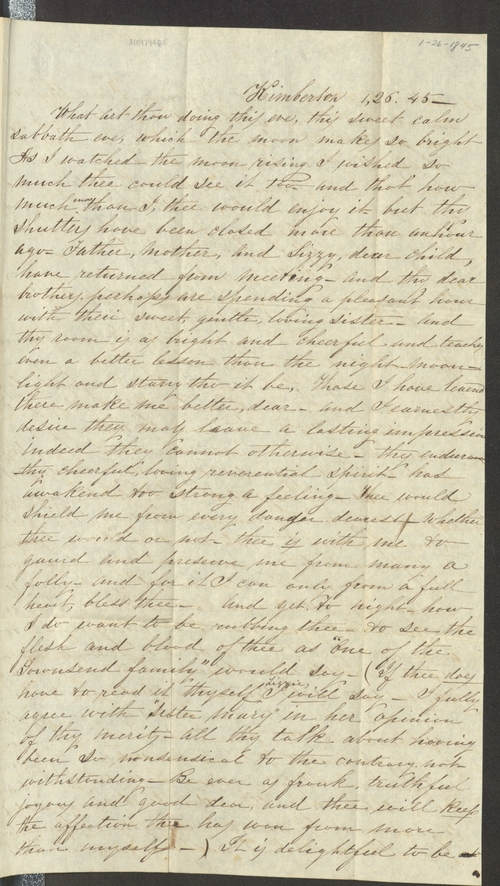 1-26-1845
Kimberton 1,26.45—
What art thou doing this eve, this sweet calm
Sabbath eve, which the moon makes so bright
As I watched the moon rising I wished so
much thee could see it too— and that how
much more than I, thee would enjoy it— but thy
shutters have been closed more than an hour
ago— Father, Mother, and Lizzy, dear child,
have returned from meeting— and thy dear
brothers, perhaps are spending a pleasant hour
with their sweet, gentle, loving sister— and
thy room is as bright and cheerful and teaches
even a better lesson than the night— moon—
light and starry tho' it be, Those I have learned
there make me better, dear— and I earnestly
desire they may leave a lasting impression
indeed they cannot otherwise— thy endurance
thy cheerful, loving reverential spirit— has
awakend too strong a feeling— Thee would
shield me from every danger dearest— whether
thee would or not— thee is with me to
guard and preserve me from many a
folly— and for it I can only from a full
heart, bless thee— And yet, to night— how
I do want to be rubbing thee— to see the
flesh and blood of thee as "One of the
Townsend family" would say— (If thee does
have to read it thyself I will say— I fully
agree with "Sister Mary" in her opinion
of thy merits— all thy talk about having
been so nonsensical to the contrary not
withstanding— Be ever as frank, truthful
joyous and good dear, and thee will keep
the affection thee has won from more
than myself—) It is delightful to be